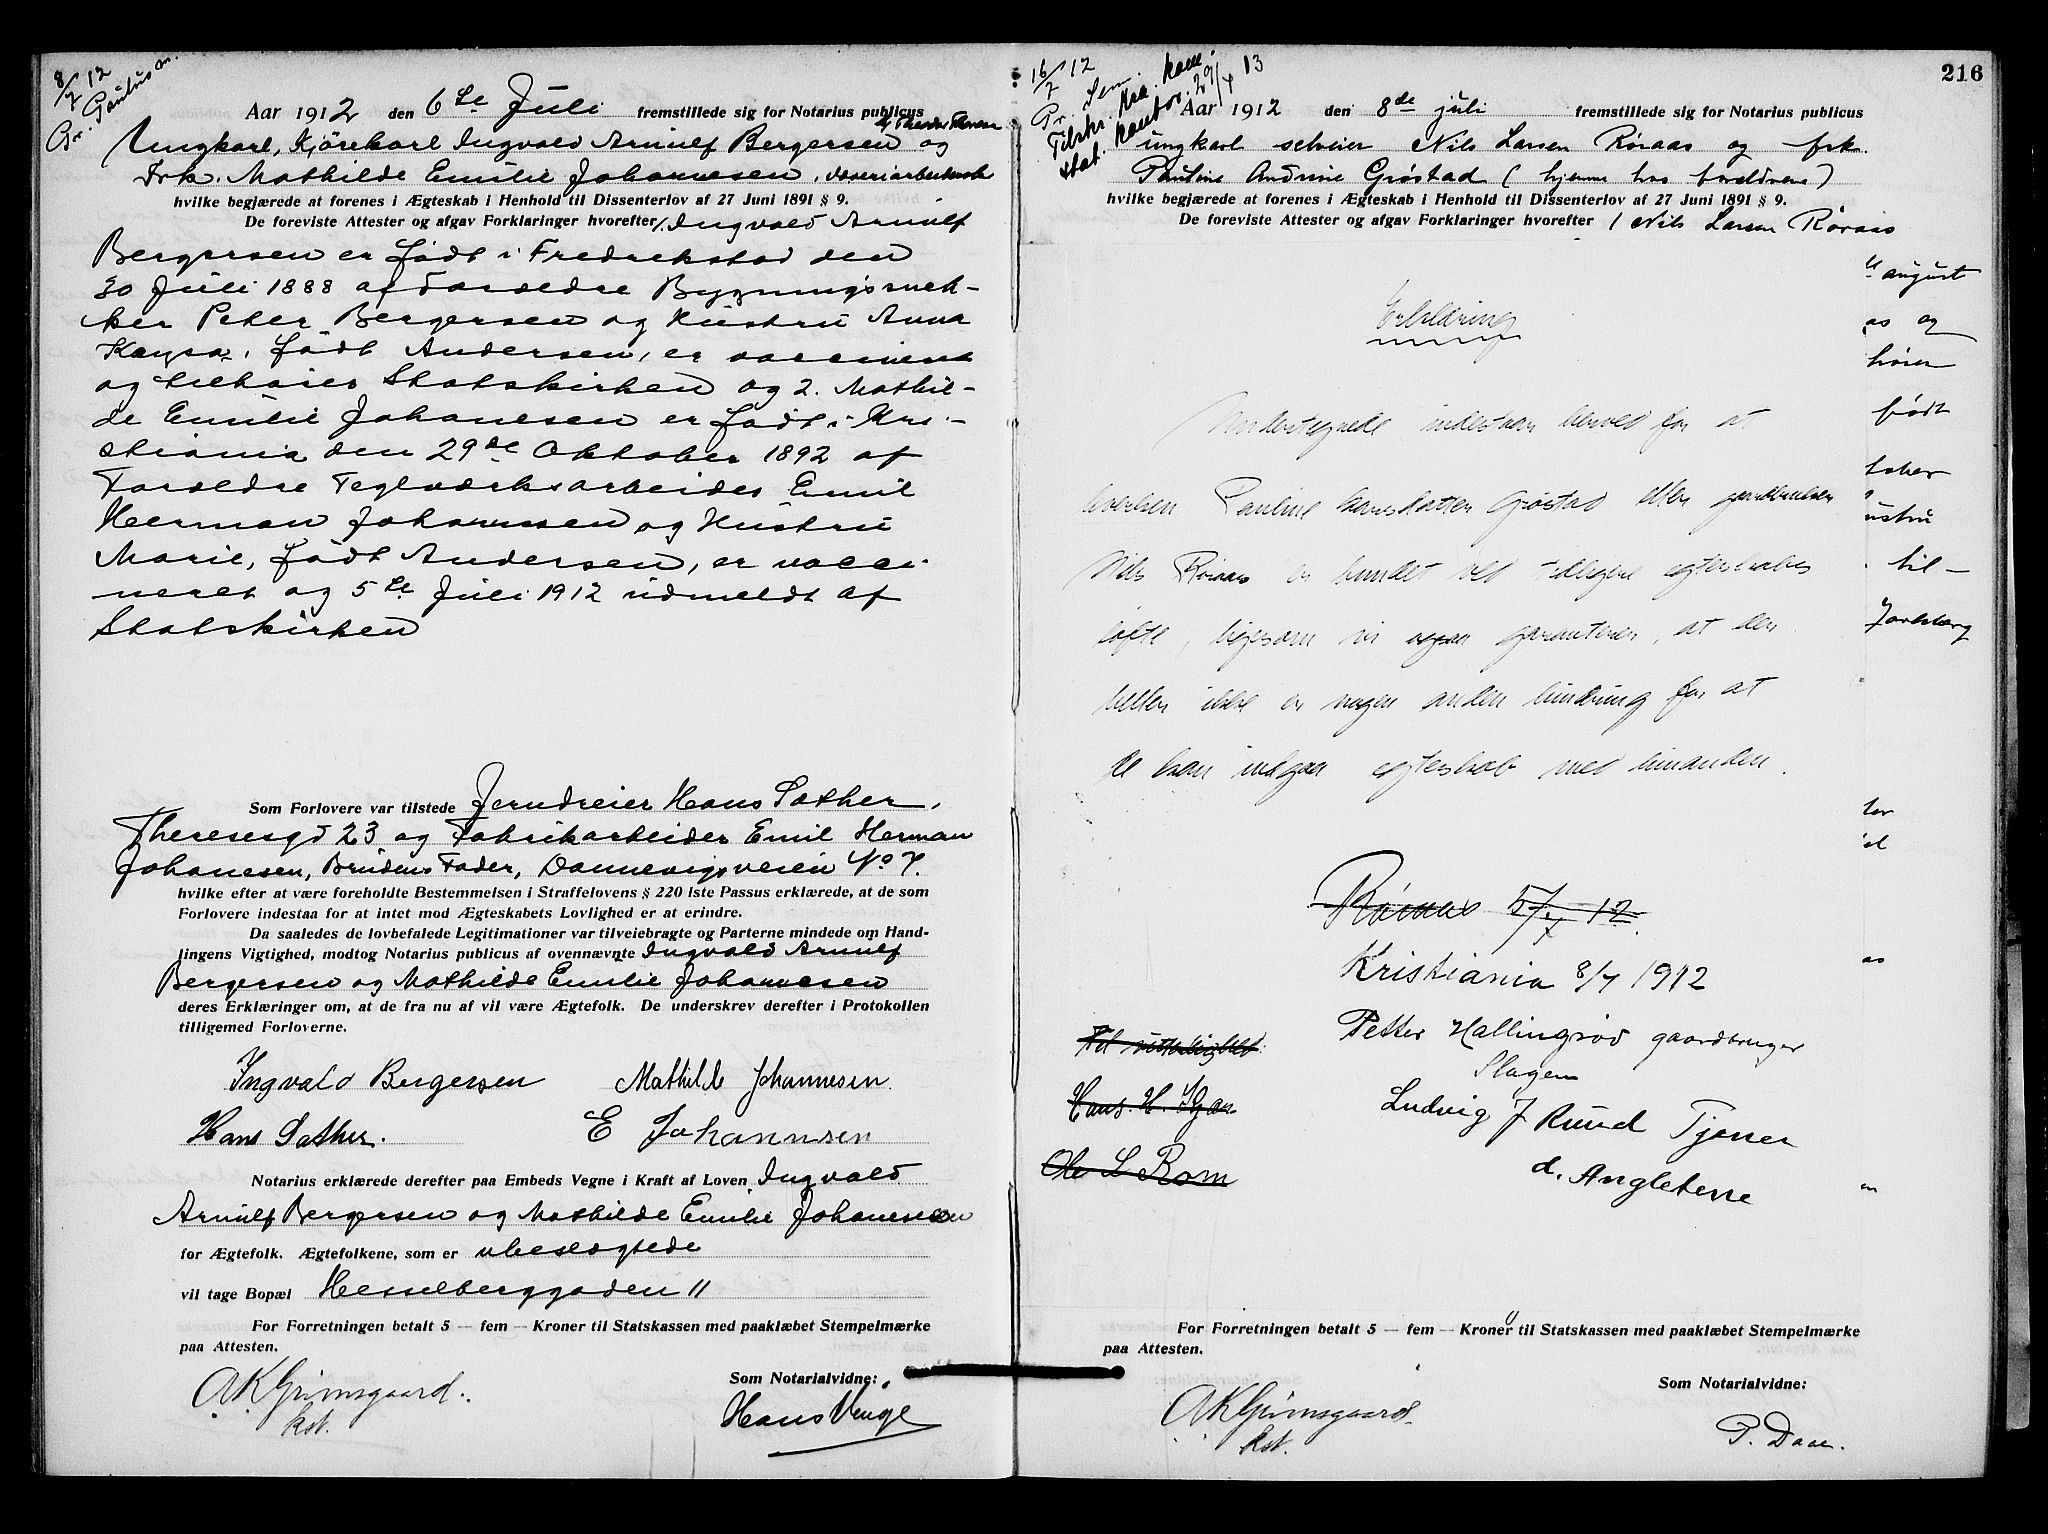 8/7 12
Pr. Paulus m.
Aar 1912 den 6te Juli fremstillede sig for Notarius publicus
Ungkarl, Kjørekarl Ingvald Arnulf Bergersen og
Frk. Mathilde Emilie Johannesen, væveriarbeiderske
hvilke begjærede at forenes i Ægteskab i Henhold til Dissenterlov af 27 Juni 1891 § 9.
De foreviste Attester og afgav Forklaringer hvorefter 1. Ingvald Arnulf
Bergersen er født i Fredrekstad den
30 Juli 1888 af Forældre Bygningssnek-
ker Peter Bergersen og Hustru Anna
Kaysa, født Andersen, er vaccineret
og tilhører Statskirken og 2. Mathil-
de Emilie Johanesen er født i Kri-
stiania den 29de Oktober 1892 af
Forældre Teglværksarbeider Emil
Herman Johannsen og Hustru
Marie, født Andersen, er vacci-
neret og 5te Juli 1912 udmeldt af
Statskirken
Som Forlovere var tilstede Jerndreier Hans Sather,
Theresesgd 23 og Fabrikarbeider Emil Herman
Johanesen, Brudens Fader, Dannevigsveien No 7.
hvilke efter at være foreholdte Bestemmelsen i Straffelovens § 220 1ste Passus erklærede, at de som
Forlovere indestaa for at intet mod Ægteskabets Lovlighed er at erindre.
Da saaledes de lovbefalede Legitimationer var tilveiebragte og Parterne mindede om Hand-
lingens Vigtighed, modtog Notarius publicus af ovennævnte Ingvald Arnulf
Bergersen og Mathilde Emilie Johannesen
deres Erklæringer om, at de fra nu af vil være Ægtefolk. De underskrev derefter i Protokollen
tilligemed Forloverne.
Ingvald Bergersen Mathilde Johannesen.
Hans Sather. E Johannsen
Notarius erklærede derefter paa Embeds Vegne i Kraft af Loven Ingvald
Arnulf Bergersen og Mathilde Emilie Johanesen
for Ægtefolk. Ægtefolkene, som er ubeslægtede
vil tage Bopæl Hesselberggaden 11
For Forretningen betalt 5 — fem — Kroner til Statskassen med paaklæbet Stempelmærke
paa Attesten.
Som Notarialvidne:
A K Grimsgaard.
kst.
Hans Venge
216
16/7 12
Pr. Sem.
Tilskr. Kra.
29/4 13
Aar 1912 den 8de juli fremstillede sig for Notarius publicus
ungkarl selveier Nils Larsen Røraas og frk.
Pauline Andrine Grøstad (hjemme hos forældrene)
hvilke begjærede at forenes i Ægteskab i Henhold til Dissenterlov af 27 Juni 1891 § 9.
De foreviste Attester og afgav Forklaringer hvorefter 1 Nils Larsen Røraas
august
as og
hører
født
ustru
til-
Erklæring
Undertegnede indestaar herved for at
hverken Pauline Grøstad eller
Nils Røraas er bundet ved tidligere egteskabs
løfte, ligesom vi ogsaa garanterer, at der
heller ikke er nogen anden hindring for at
de kan indgaa egteskab med hinanden.
Røraas 5/7 12.
Kristiania 8/7 1912
Til vitterlighet:
Petter Hallingrød gaardbruger
Slagen
Ludvig J Ruud Tjener
d. Angleterre
Ole L Rom
For Forretningen betalt 5 — fem — Kroner til Statskassen med paaklæbet Stempelmærke
paa Attesten.
Som Notarialvidne:
A K Grimsgaard.
kst.
P. Daae.